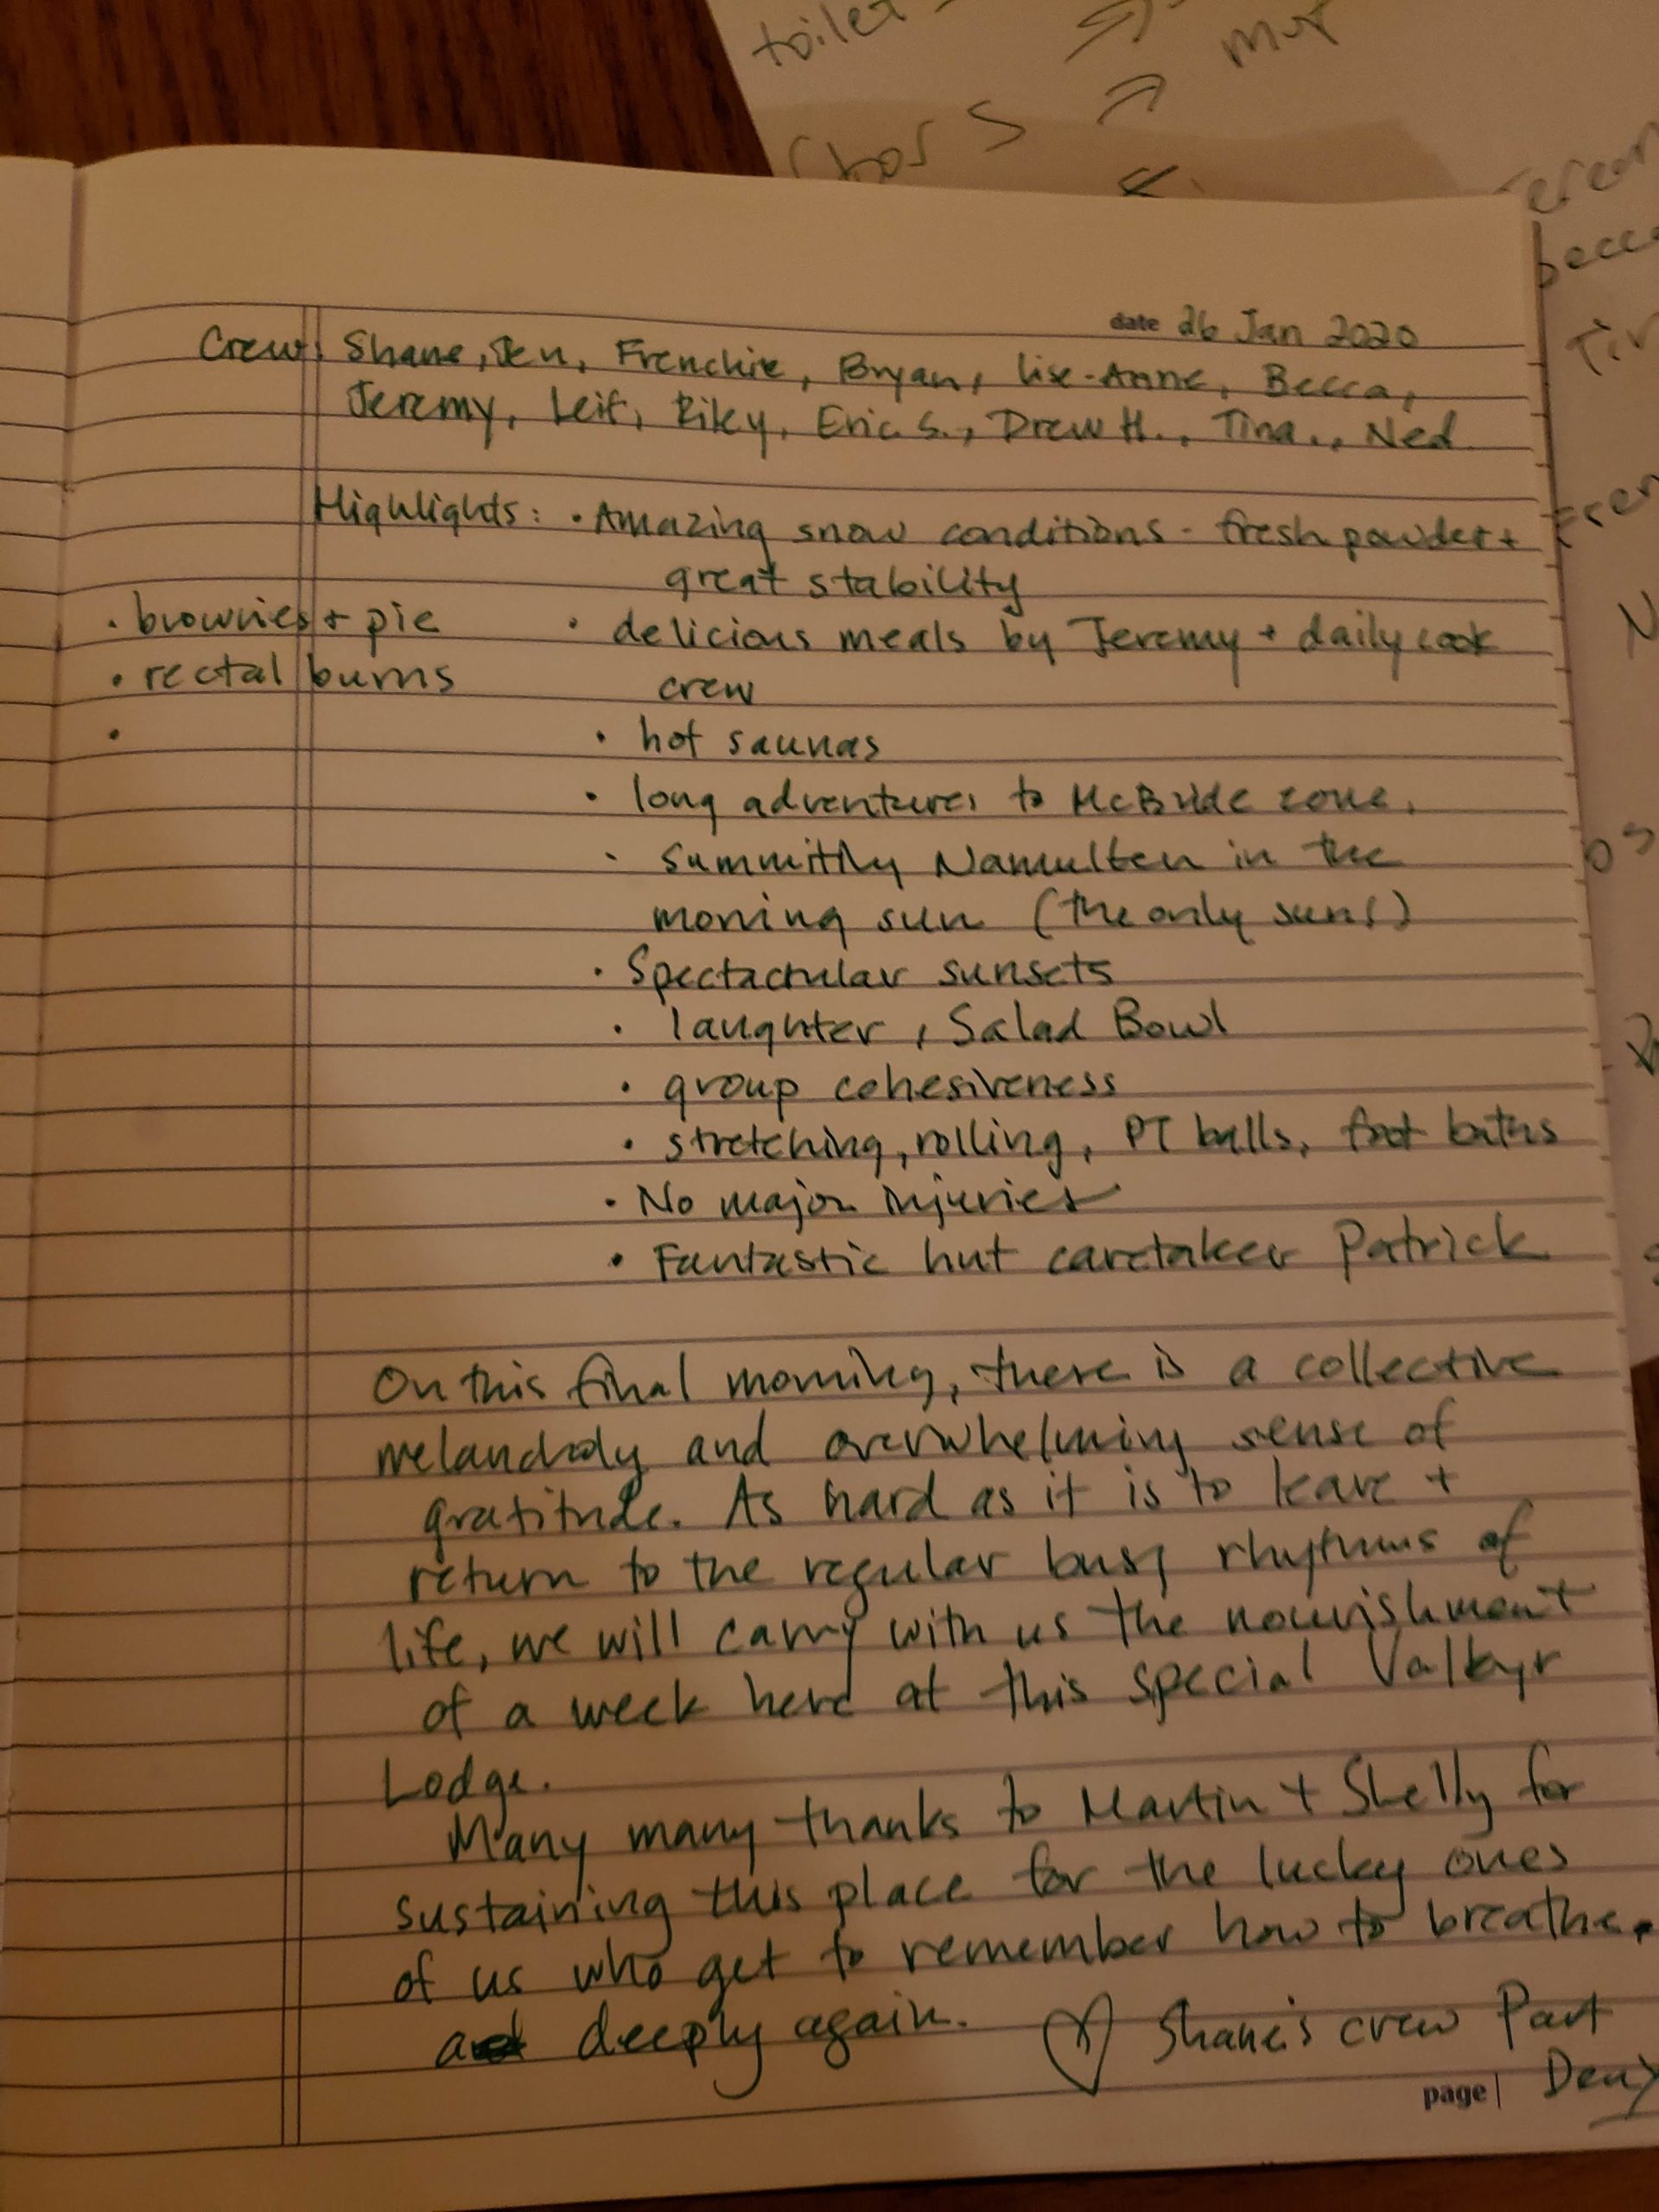 toilet
mop
Chors
date 26 Jan 2020
Crew: Shane, Jen, Frenchie, Bryan, Lise-Anne, Becca,
Jeremy, Leif, Riky, Eric S., Drew H., Tina., Ned
Highlights: • Amazing snow conditions - fresh powder +
great stability
• brownies + pie
• rectal burns
•
• delicious meals by Jeremy + daily cook
crew
• hot saunas
• long adventures to McBride zone.
• summitting Namulten in the
morning sun (the only sun!)
• Spectacular sunsets
• laughter, Salad Bowl
• group cohesiveness
• stretching, rolling, PT balls, foot baths
• No major injuries
• Fantastic hut caretaker Patrick
On this final morning, there is a collective
melancholy and overwhelming sense of
gratitude. As hard as it is to leave +
return to the regular busy rhythms of
life, we will carry with us the nourishment
of a week here at this special Valkyr
Lodge.
Many many thanks to Martin + Shelly for
sustaining this place for the lucky ones
of us who get to remember how to breathe.
deeply again. Shane's crew Part
page